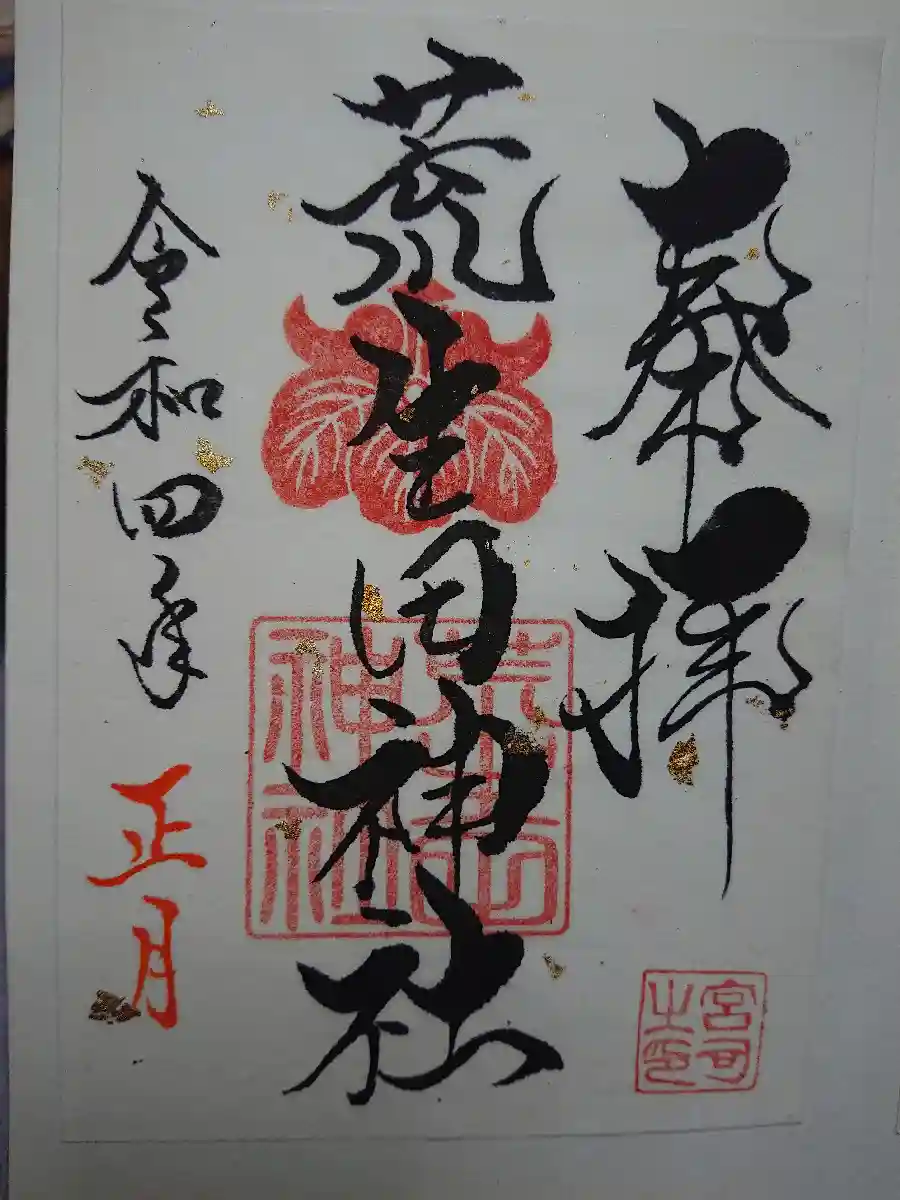 奉拝
宮司
之印
荒生田神社
神社
令和四年 正月